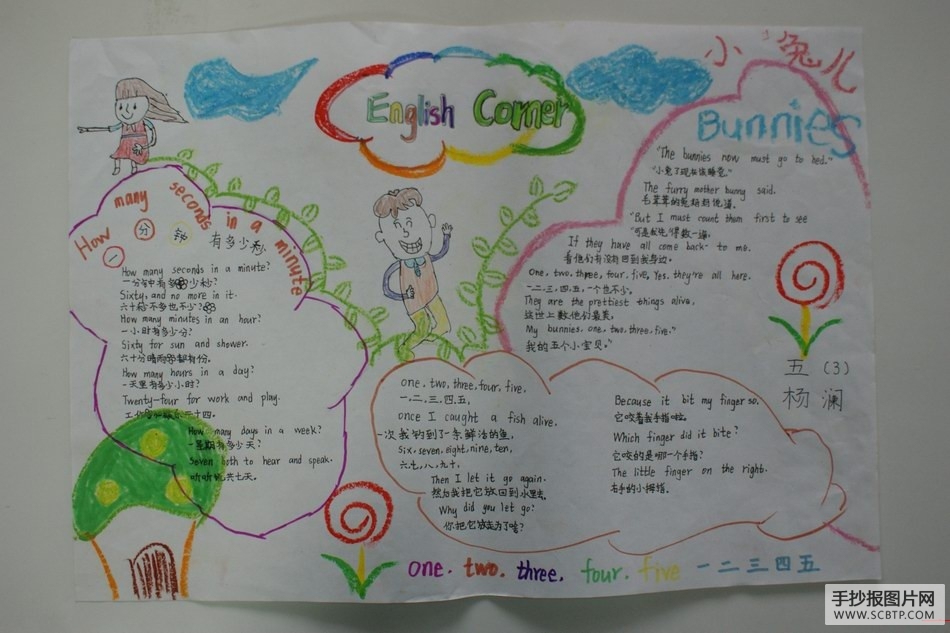 English Corner
小兔儿
Bunnies
How many seconds in a minute
一分钟有多少秒
How many seconds in a minute?
一分钟中有多少秒?
Sixty, and no more in it.
六十秒不多也不少?
How many minutes in an hour?
一小时有多少分?
Sixty for sun and shower.
六十分晴雨都有份。
How many hours in a day?
一天里有多少小时?
Twenty-four for work and play.
二十四。
How many days in a week?
一星期有多少天?
Seven both to hear and speak.
听听说共七天。
"The bunnies now must go to bed."
"小兔子现在该睡觉。"
The furry mother bunny said.
毛茸茸的兔妈妈说道。
"But I must count them first to see
"可是我先得数一遍
If they have all come back to me.
看他们有没有回到我身边。
One, two, three, four, five, Yes, they're all here.
一二、三、四、五,一个也不少。
They are the prettiest things alive.
这世上数他们最美。
My bunnies, one, two, three, five."
我的五个小宝贝。"
五 (3)
杨 澜
One, two, three, four, five,
一、二、三、四、五,
Once I caught a fish alive,
一次我钓到了一条鲜活的鱼,
Six, seven, eight, nine, ten,
六、七、八、九、十,
Then I let it go again.
然后我把它放回到小里去。
Why did you let go?
你把它放为了啥?
Because it bit my finger so.
它咬着我手指啦。
Which finger did it bite?
它咬的是哪一个手指?
The little finger on the right.
右手的小拇指。
one. two. three. four. five 一 二 三 四 五
手抄报图片网
WWW.SCBTP.COM